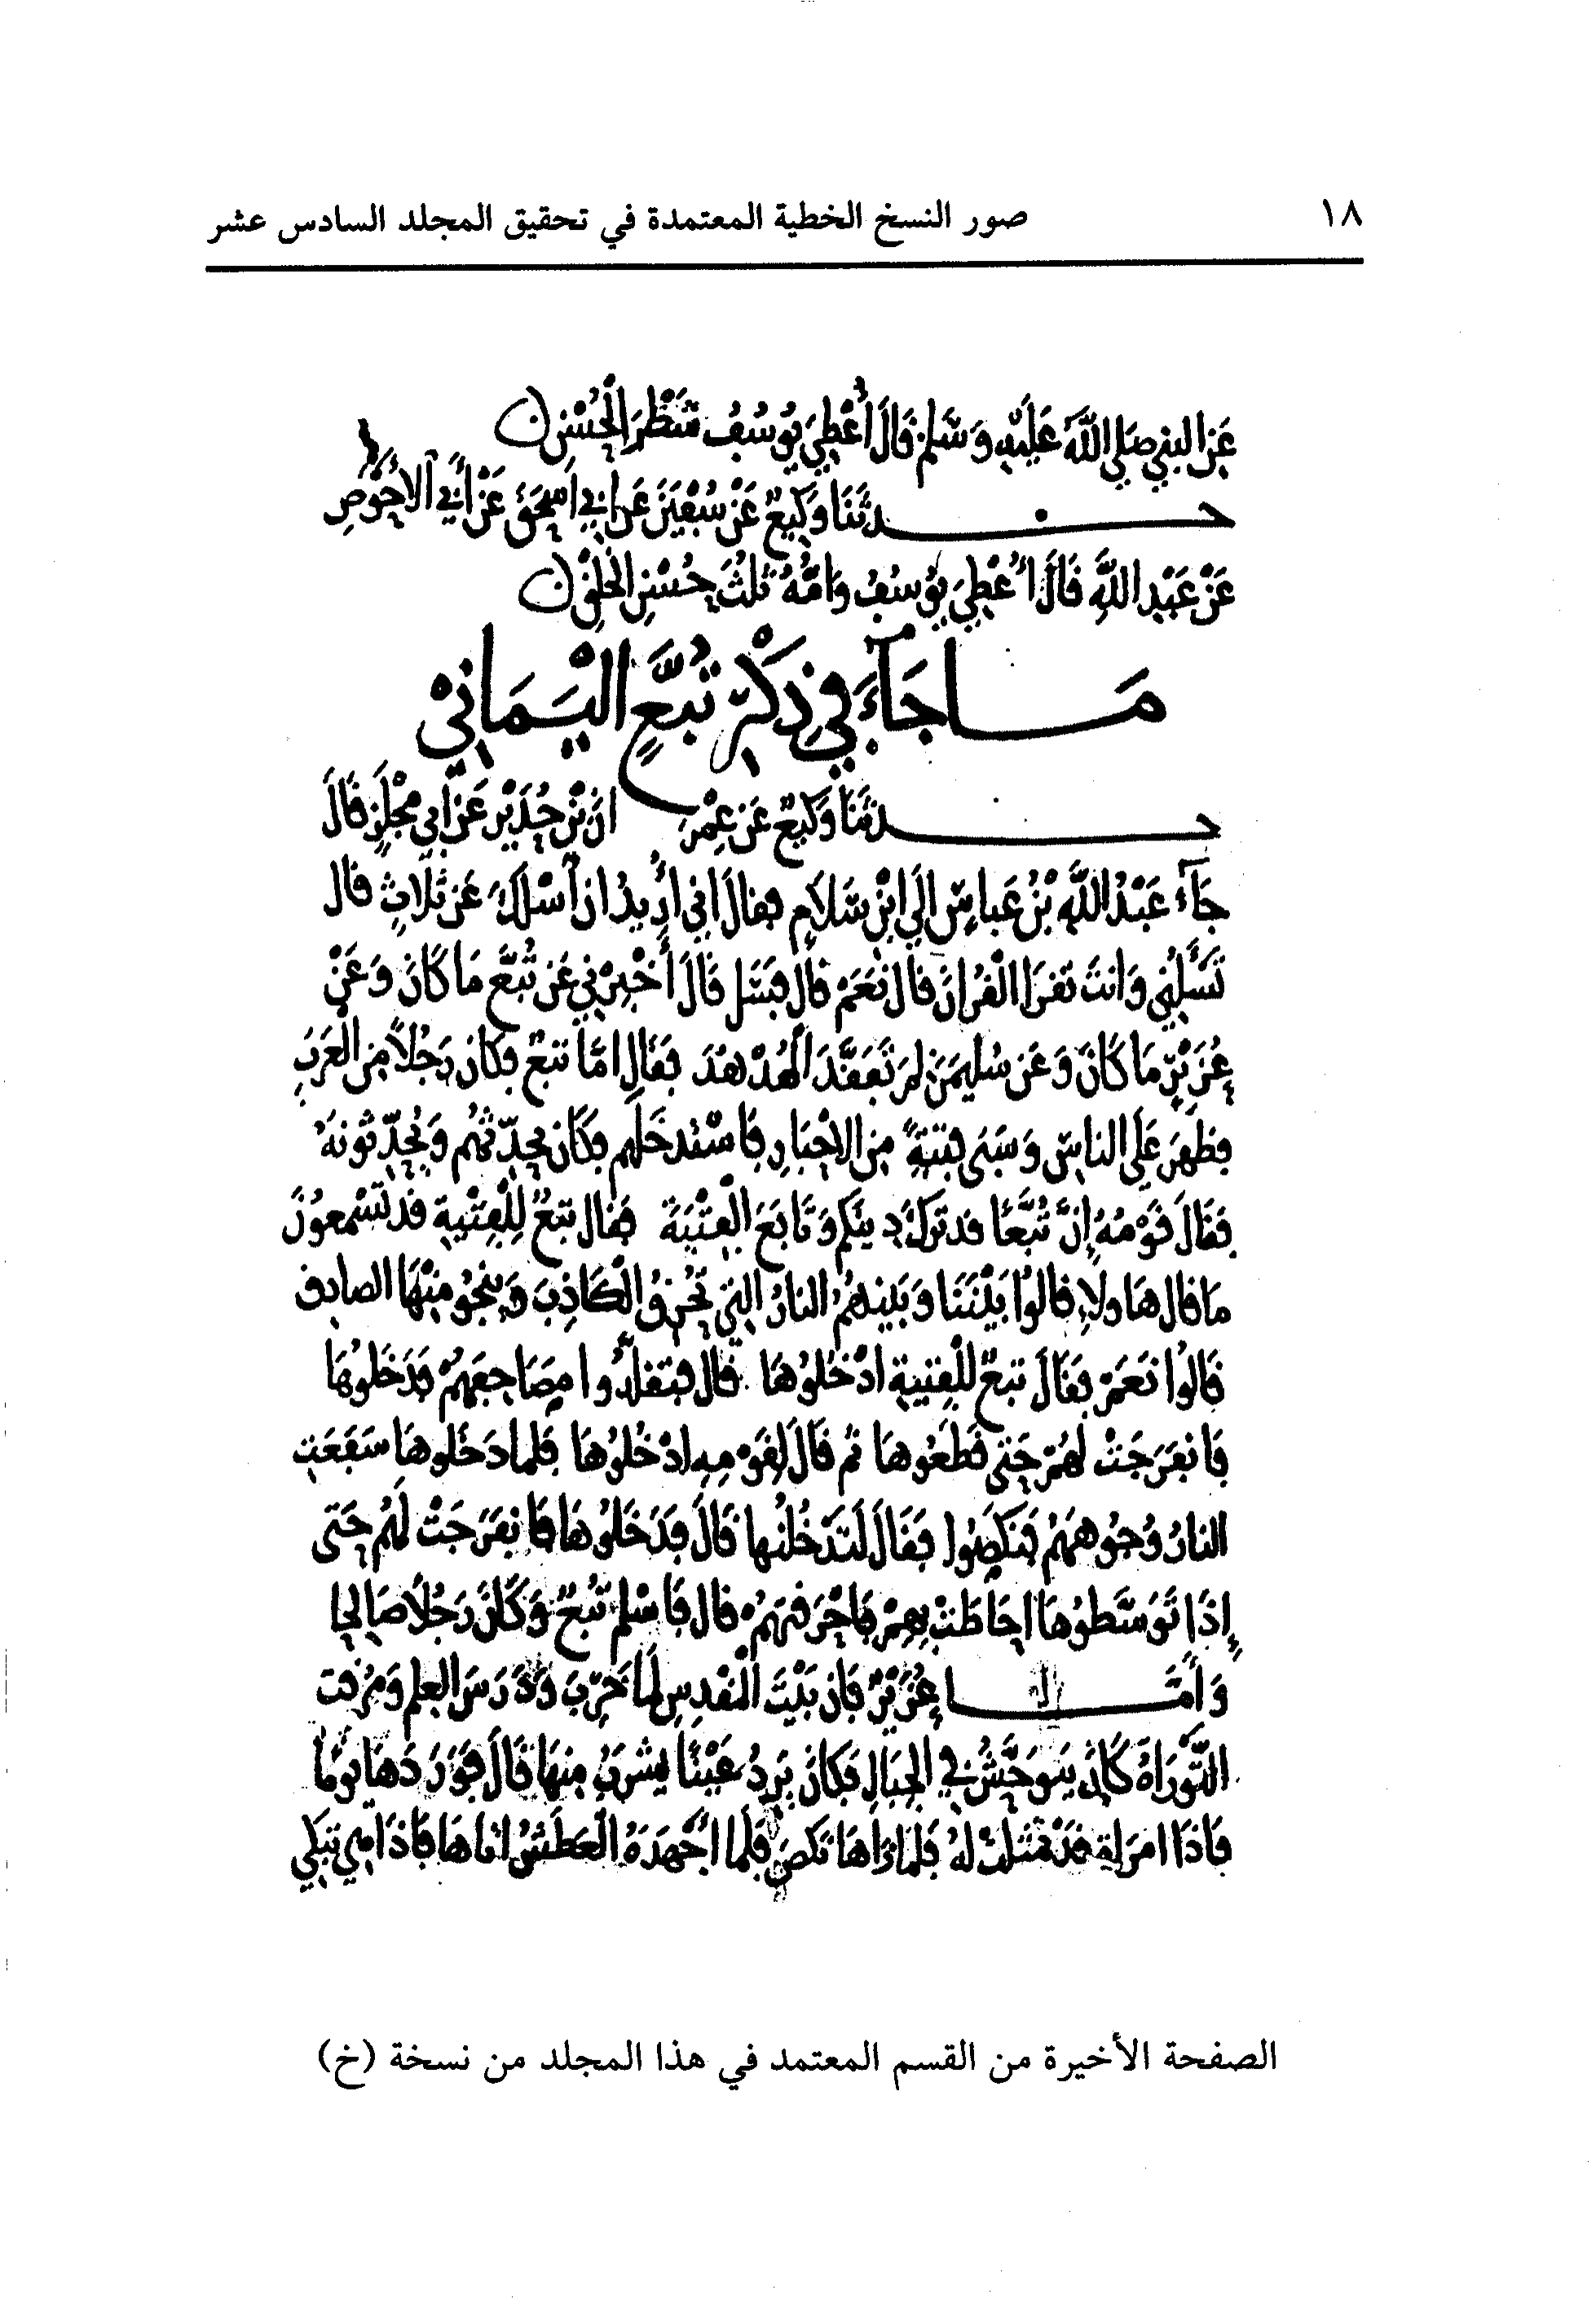 ١٨
صور النسخ الخطية المعتمدة في تحقيق المجلد السادس عشر
عَن النبي صَلى اللَّه عَلَيْهِ وَسَّلم قَالَ أُعْطِيَ يُوسُفُ شَطْرَ الْحُسْنِ
حـدثَنَا وَكِيعٌ عَنْ سُفْيَنَ عَن أبي اسحَق عَنْ أَبي الأحْوَصِ
عَنْ عَبْدِ اللَّهِ قَالَ أُعْطِيَ يُوسُفُ وَامُّهُ ثُلُثَ حُسْنِ الخلقِ
مـا جَآءَ في ذِكْرِ تُبَّعٍ الْيَمَانِي
حـدثَنَا وَكِيعٌ عَن عِمْرَ انَ بْنِ حُدَيْرٍ عَن أبي مِجْلَزٍ قَالَ
جَآءَ عَبْدُ اللَّهِ بْنُ عَباسٍ إلَى ابْنِ سَلَامٍ فقالَ اني أُرِيدُ ان أَسْلَكَ عَن ثَلَاثٍ قال
تَسَلُنِي وَانتَ تَقرَا الْقُرانَ قال نَعَمْ قال فسَل قَالَ أَخْبِرْنِي عَن تُبَّعٍ مَا كَانَ وَعَنْ
عُزَيْرٍ مَا كَانَ وَعَن سُليمَنَ لِمَ تَفَقَّدَ الْهُدْهُدَ فَقَالَ امَّا تبعٌ فكانَ رَجُلاً مِن العَرَبِ
فظَهَرَ عَلَى الناسِ وَسَبَى فتيَةً مِن الاحْبَارِ فَاسْتدخَلَهم فكَانَ يحدِّثهُم وَيُحدِّثونَهُ
فَقَالَ قَوْمُهُ إنَّ تُبَّعًا قد تَركَ دِينَكم وَتَابَعَ الْفِتْيَةَ فقال تبعٌ لِلْفِتْيةِ قد تَسْمعُونَ
مَا قال هَاولاءِ قالُوا بَيْنَنَا وَبَينهمُ النارُ التي تحْرِقُ الْكَاذِبَ وَينجُو مِنْهَا الصادِق
قَالُوا نَعَمْ فَقَالَ تبعٌ لِلْفِتيةِ ادْخُلُوهَا قال فتقلدُوا مصَاحِفَهُمْ فدَخَلُوهَا
فَانفَرَجَتْ لهُمْ حَتى قَطَعُوهَا ثم قَالَ لِقَوْمِهِ ادْخُلُوهَا فلما دَخَلُوهَا سَفَعَت
النارُ وُجُوهَهُمْ فَنَكَصُوا فَقَالَ لَتَدْخُلُنها قَالَ فدَخَلُوهَا فَانفَرَجَتْ لَهُم حَتى
إذَا تَوَسَّطُوهَا احَاطَتْ بِهِمْ فَاحْرَقَتهُمْ قال فَاسْلمَ تُبعٌ وَكَانَ رَجُلاً صَالِحا
وَأمَّـا عُزَيْرٌ فَإن بَيْتَ المَقْدِسِ لَمَا خَرِبَ وَدَرَسَ العِلمُ وَمُزِقت
التَّوْرَاةُ كَانَ يَتوَحَّشُ في الجِبَالِ فكَانَ يَرِدُ عَيْنًا يشرَبُ مِنهَا قَالَ فوَرَدَهَا يَوْمًا
فَاذَا امرَاة قَدْ تمثلَتْ لهُ فَلَمَّا رَاهَا نكَصَ فَلَما أَجْهَدَهُ الْعَطَشُ اتاهَا فَاذَا هي تبكي
الصفحة الأخيرة من القسم المعتمد في هذا المجلد من نسخة (خ)